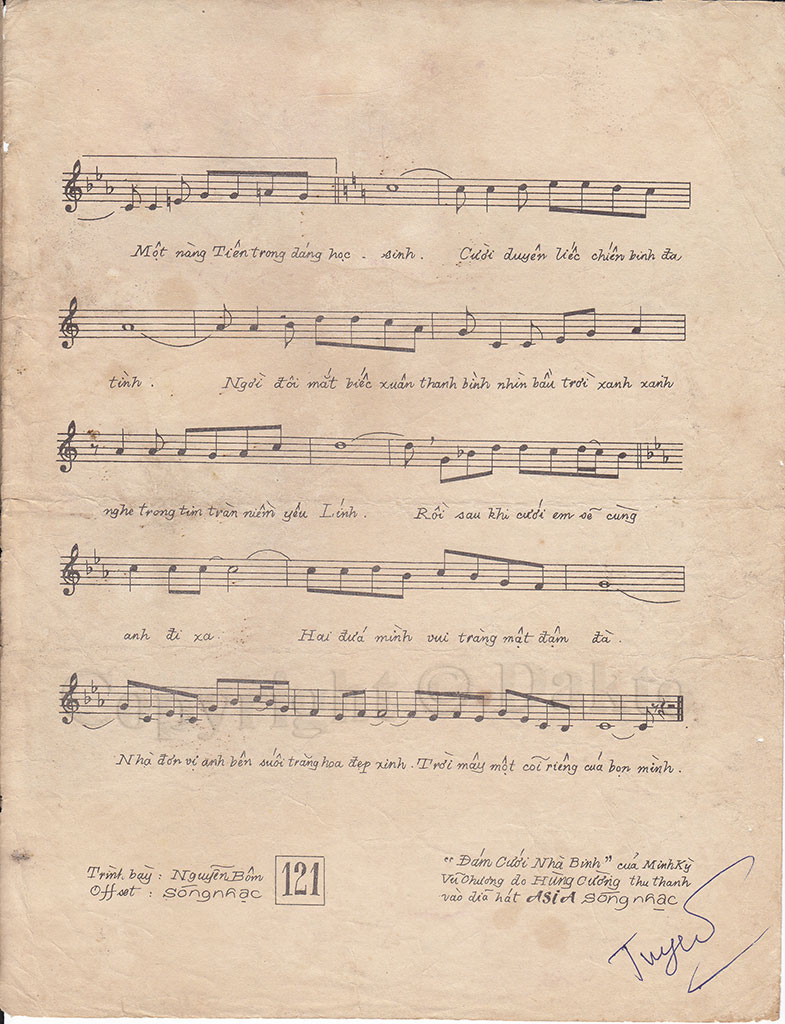 Một nàng Tiên trong dáng học - sinh. Cười duyên liếc chiến binh đa
tình. Ngời đôi mắt biếc xuân thanh bình nhìn bầu trời xanh xanh
nghe trong tim tràn niềm yêu Lính. Rồi sau khi cưới em sẽ cùng
anh đi xa. Hai đứa mình vui trăng mật đậm đà.
Copyright © Dakta
Nhà đơn vị anh bên suối trăng hoa đẹp xinh. Trời mây một cõi riêng của bọn mình.
Trình bày: Nguyễn Bôm
Offset: Sóngnhạc
121
“Đám Cưới Nhà Binh” của Minh Kỳ
Vũ Chương do Hùng Cường thu thanh
vào dĩa hát ASIA Sóng nhạc